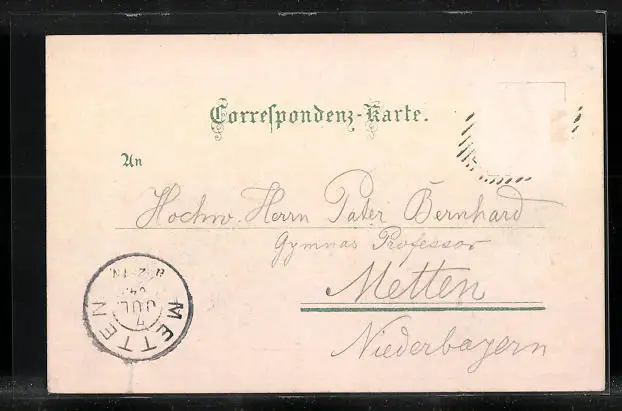 Correspondenz-Karte.
An
Hochw. Herrn Pater Bernhard
Gymnas Professor
Metten
Niederbayern
METTEN
7
JUL